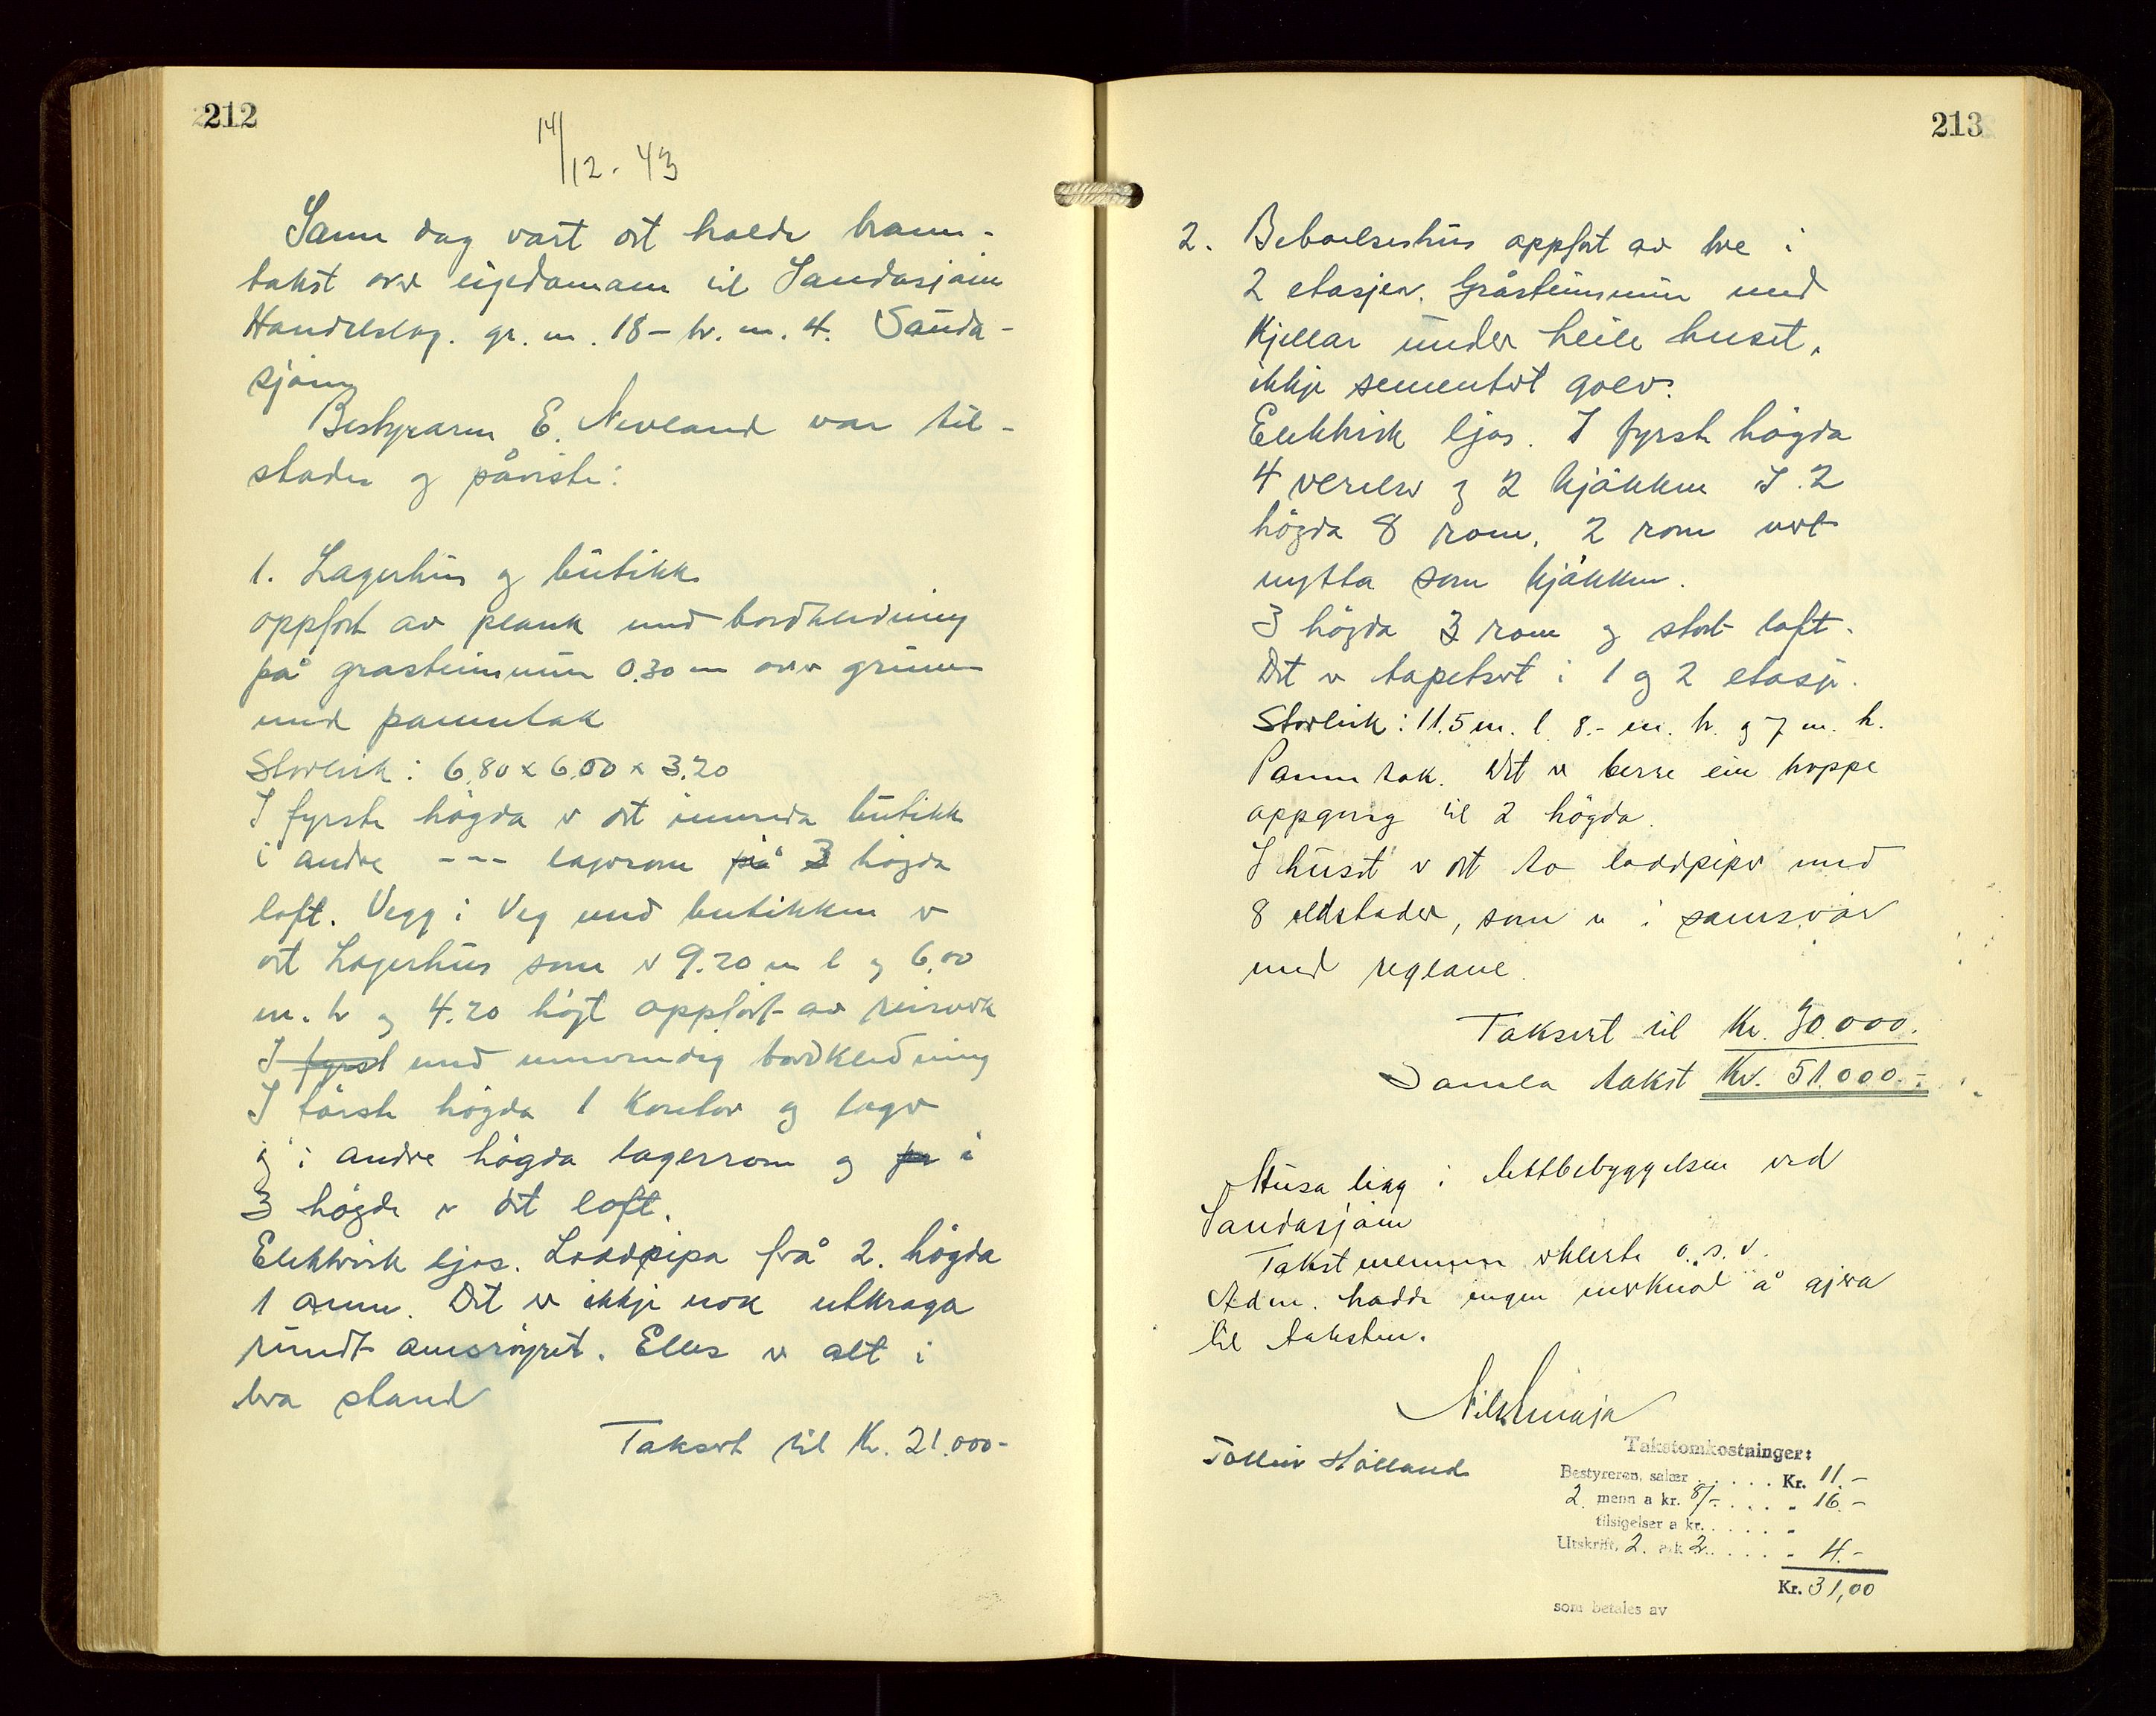 212
14/12. 43
Same dag vart det halde brann-
takst over eigedomane til Saudasjøen
Handelslag. gr. n. 18 - br. n. 4. Sauda-
sjøen
Bestyraren E. Nevland var til-
stades og påviste:
1. Lagerhus og butikk
oppført av plank med bordkledning
på gråsteinsmur 0.30 m over grunnen
med pannetak
Storleik: 6.80 x 6.00 x 3.20
I fyrste høgda er det innreda butikk
i andre --- lagerrom på 3 høgda
loft. Vegg i Veg med butikken er
det Lagerhus som er 9.20 m l og 6.00
m. br og 4.20 högt oppført av reisverk
I fyrst med utvendig bordkledning
I första högda 1 Kontor og lager
og i andre högda lagerrom og på i
3 högde er det loft.
Elektrisk ljos. Loddpipa frå 2. högda
1 omn. Det er ikkje nok utkraga
rundt omsröyret. Elles er alt i
bra stand
Taksert til Kr. 21.000-
213
2. Beboelseshus oppført av tre i
2 etasjer. Gråsteinsmur med
Kjellar under heile huset,
ikkje sementert golv.
Elektrisk ljos. I fyrste högda
4 verelser og 2 kjøkken I. 2
högda 8 rom, 2 rom vert
nytta som kjøkken.
3 högda 3 rom og stort loft.
Det er tapetsert i 1 og 2 etasje.
Storleik: 11.5 m. l. 8.- m. br. og 7 m. h.
Panne tak. Det er berre ein trappe
oppgang til 2 högda.
I huset er det to loddpiper med
8 eldstader, som er i samsvar
med reglane.
Taksert til Kr. 30.000.
Samla takst Kr. 51.000.-
Husa ligg i tettbebyggelsen ved
Saudasjøen
Takstmennene erklærte o.s.v.
Adm. hadde ingen merknad å gjera
til taksten.
Tolleiv Hölland
Takstomkostninger:
Bestyreren, salær . . . . . Kr. 11.-
2 menn a kr. 8/- . . . . „ 16.-
tilsigelser a kr. . . . . . „
Utskrift, 2 ark 2. . . . . „ 4.-
Kr. 31,00
som betales av